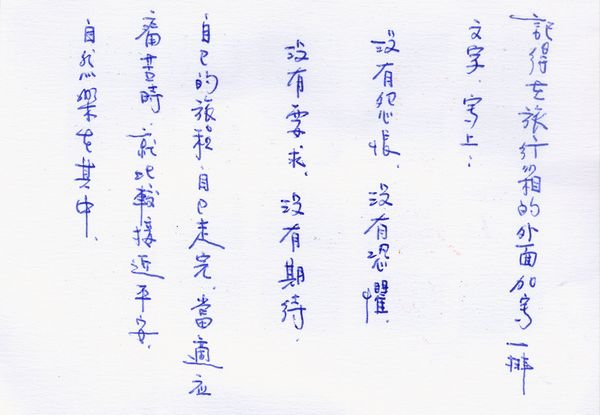 記得在旅行箱的外面加寫一排
文字．寫上：
沒有怨悵．沒有恐懼．
沒有要求．沒有期待．
自己的旅程自己走完．當適应
痛苦時．就比較接近平安．
自然樂在其中．